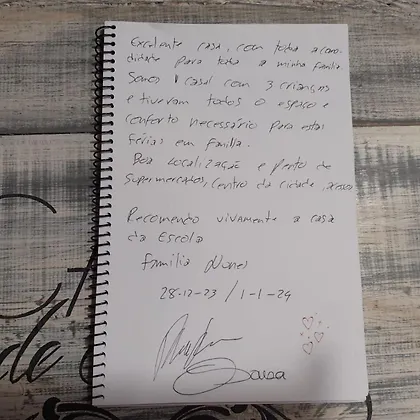 Excelente casa, com toda a como-
didade para toda a minha familia.
Somos 1 casal com 3 crianças
e tiveram todos o espaço e
conforto necessário para estas
férias em familia.
Boa localização e perto de
supermercados, centro da cidade,
Recomendo vivamente a casa
da Escola
Familia Nunes
28-12-23 / 1-1-24
Sousa